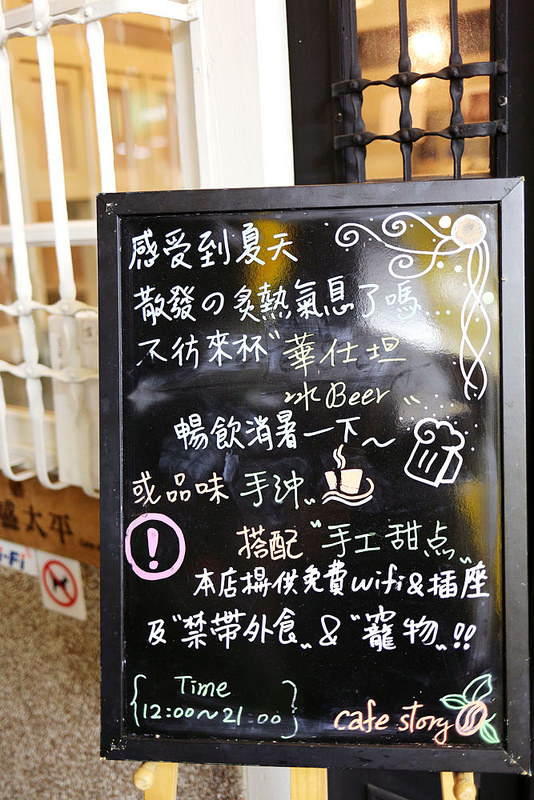 感受到夏天
散發の炙熱氣息了嗎...
不彷來杯〝華仕坦
冰Beer〞
暢飲消暑一下～
或品味 手沖〞
！
搭配〝手工甜点〞
本店提供免費wifi&插座
及〝禁帶外食〞&〝寵物〞!!
Time
12:00～21:00
cafe story
盛太平
i-Fi